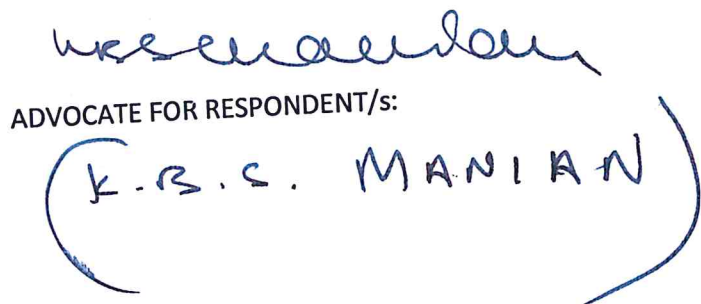 ADVOCATE FOR RESPONDENT/s:
(K.B.S. MANIAN)